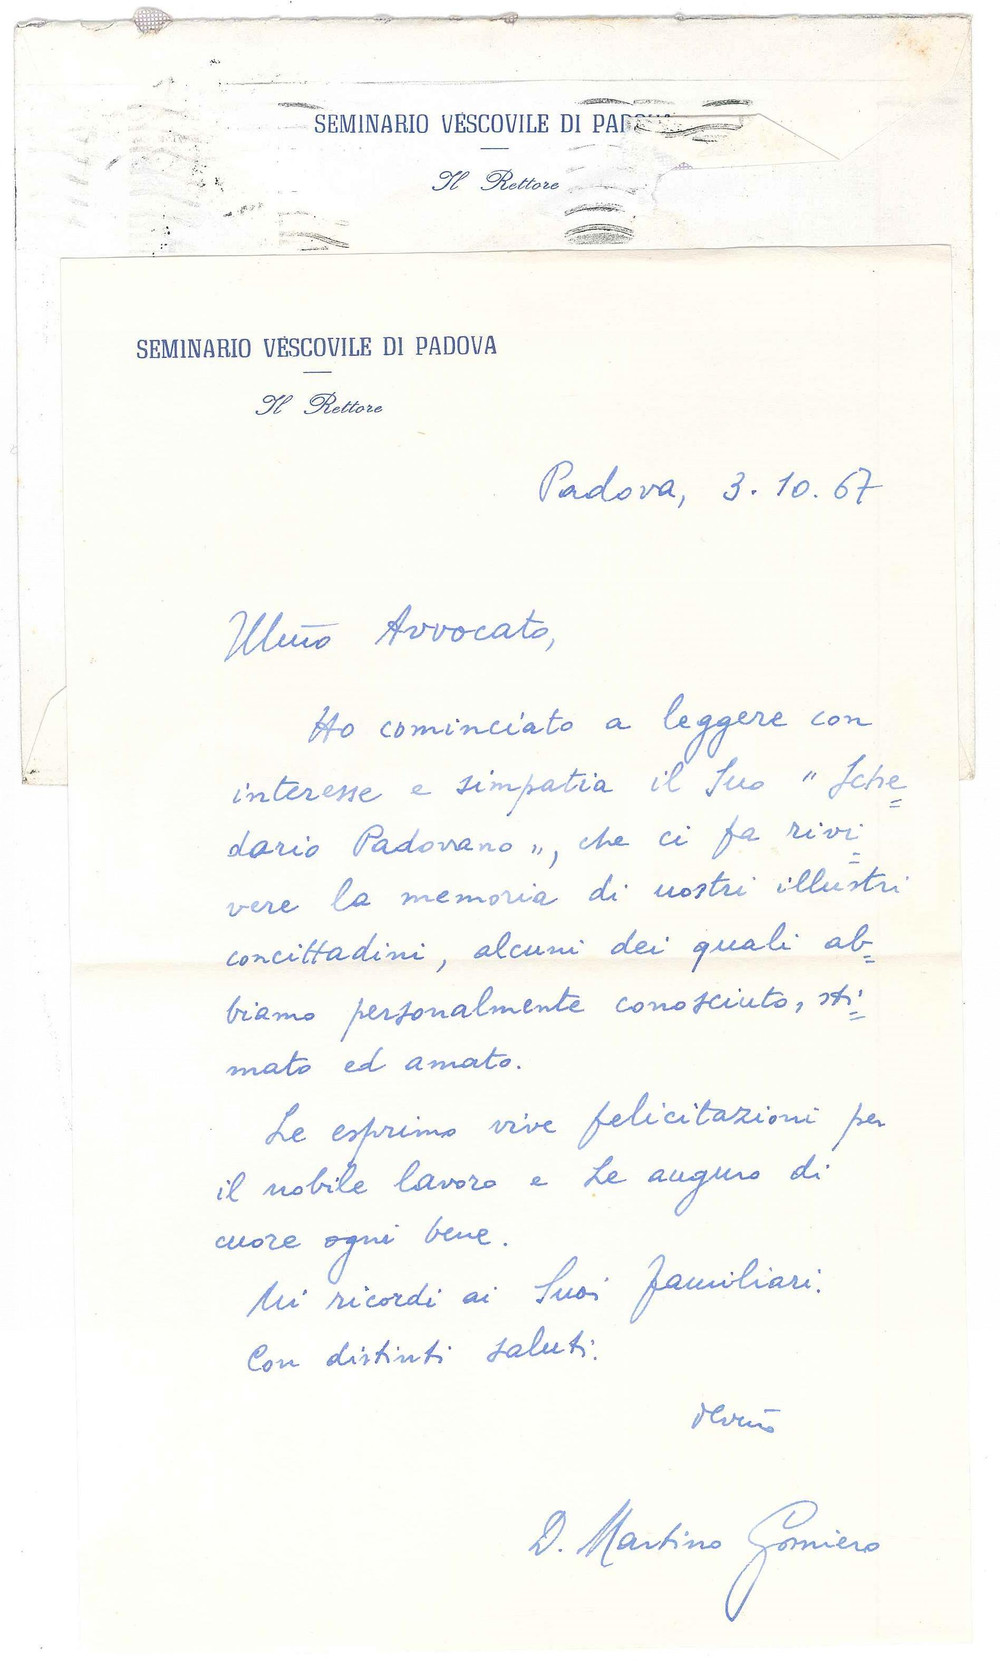 SEMINARIO VESCOVILE DI PADOVA
Il Rettore
SEMINARIO VESCOVILE DI PADOVA
Il Rettore
Padova, 3.10.67
Ill.mo Avvocato,
Ho cominciato a leggere con
interesse e simpatia il Suo "Sche=
dario Padovano", che ci fa rivi=
vere la memoria di nostri illustri
concittadini, alcuni dei quali ab=
biamo personalmente conosciuto, sti=
mato ed amato.
Le esprimo vive felicitazioni per
il nobile lavoro e Le auguro di
cuore ogni bene.
Mi ricordi ai Suoi familiari.
Con distinti saluti.
dev.mo
D. Martino Gomiero